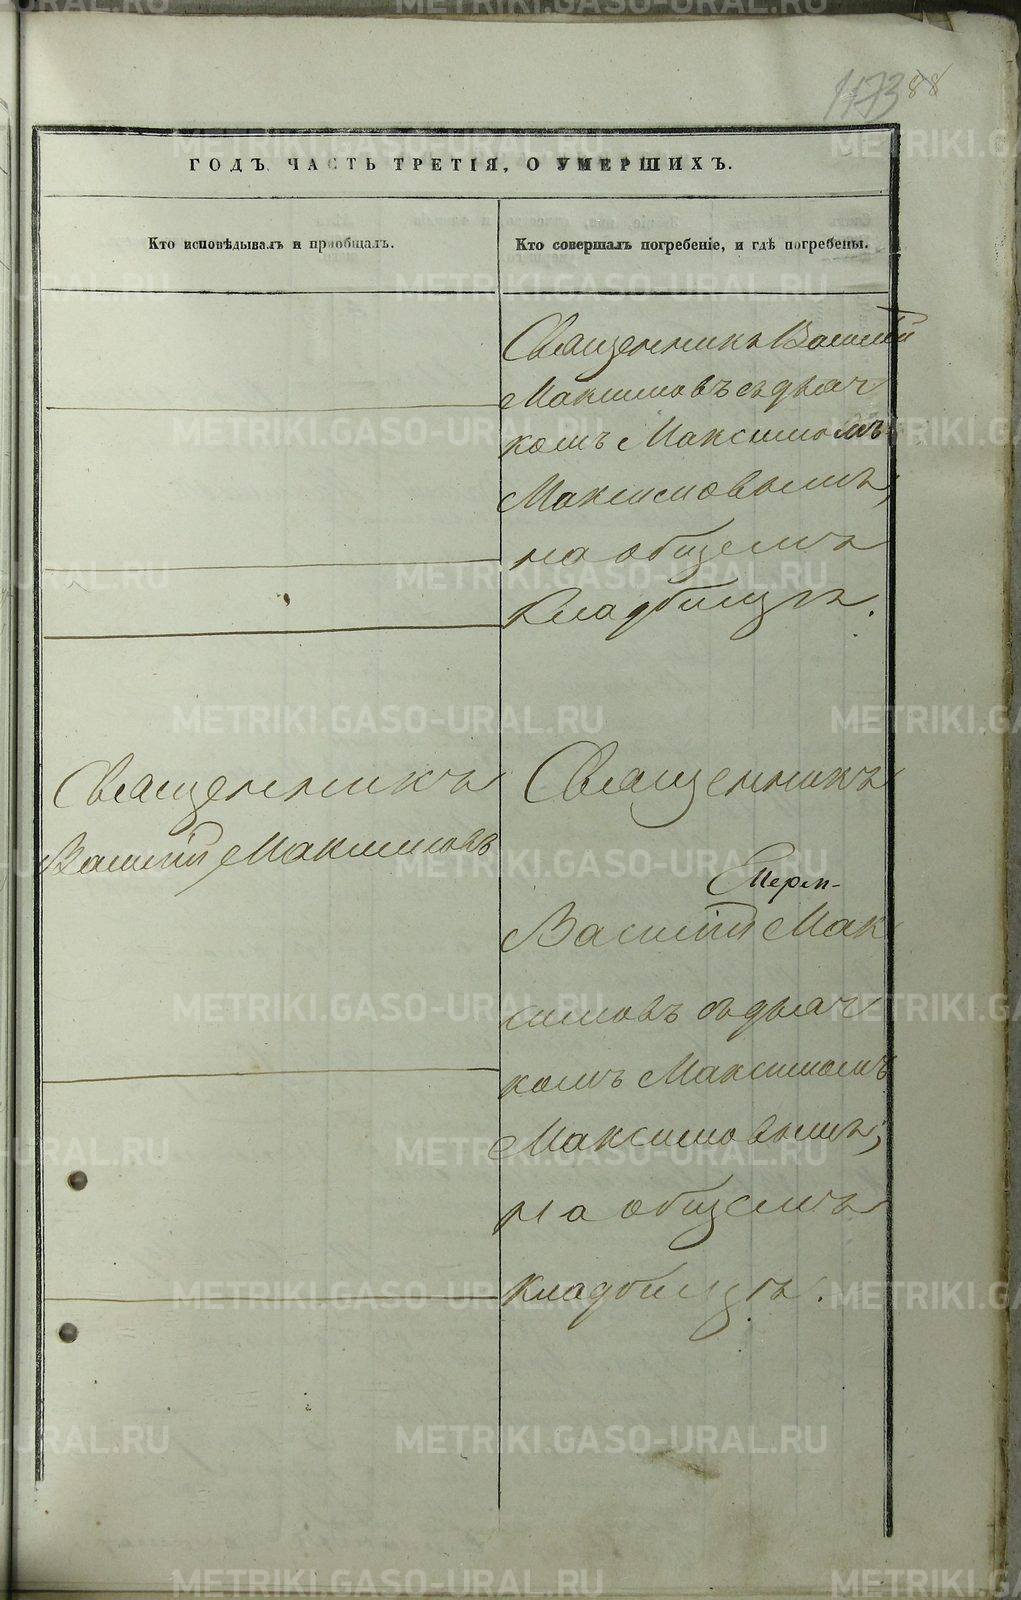 88
ГОДЪ, ЧАСТЬ ТРЕТІЯ, О УМЕРШИХЪ.
Кто исповѣдывалъ и пріобщалъ.
Кто совершалъ погребеніе, и гдѣ погребены.
Священникъ Василій
Максимовъ съ дьяч
комъ Максимомъ
Максимовымъ,
на общемъ
кладбищѣ.
Священникъ
Василій Максимовъ
Священникъ
Василій Мак
симовъ съ дьяч
комъ Максимомъ
Максимовымъ,
на общемъ
кладбищѣ.
METRIKI.GASO-URAL.RU